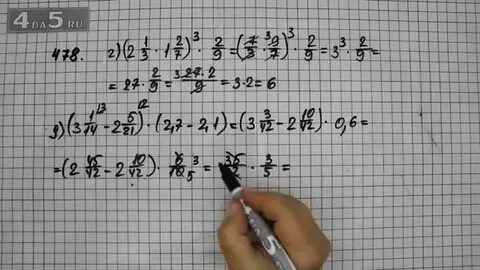 4DA5.RU
478. 2) (2 1/3 · 1 2/7)³ · 2/9 = (7/3 · ³9/7)³ · 2/9 = 3³ · 2/9 =
= 27 · 2/9 = ³27·2/9 = 3·2 = 6
g) (3 1/14 ⁽³ - 2 5/21 ⁽²) · (2,7 - 2,1) = (3 3/42 - 2 10/42) · 0,6 =
= (2 45/42 - 2 10/42) · 6/10 3/5 = 35/42 · 3/5 =